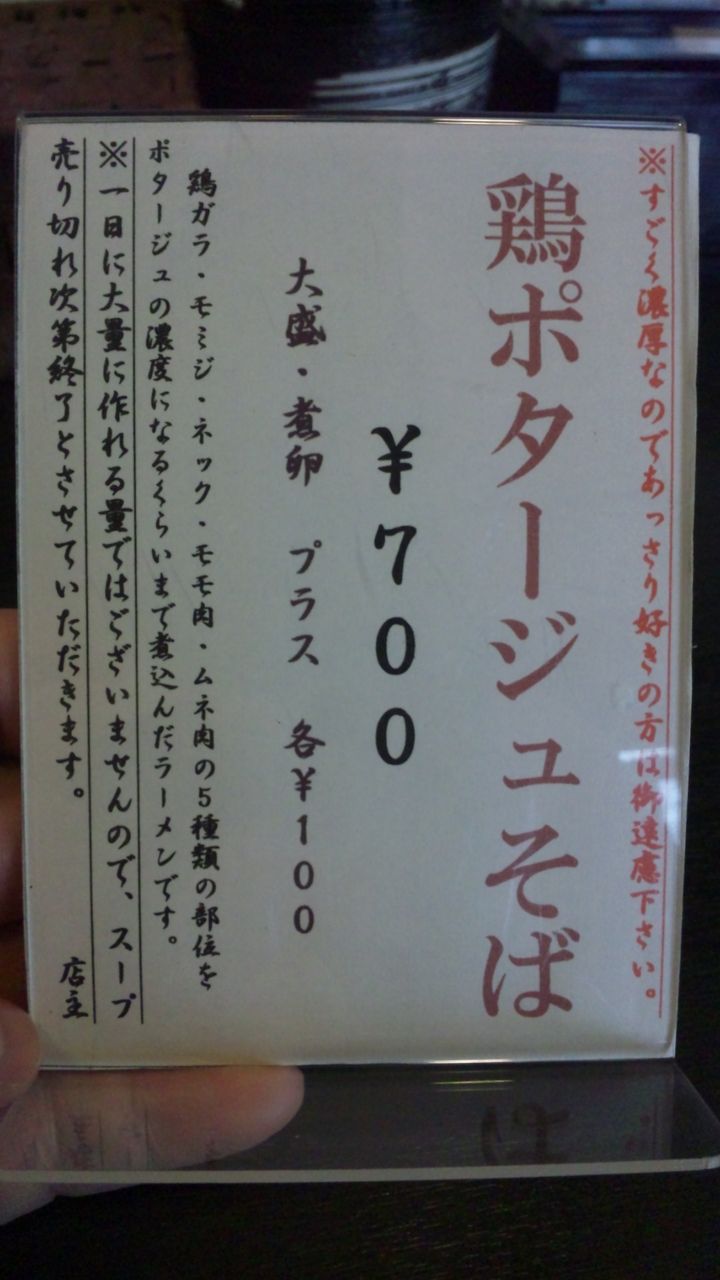 ※すごく濃厚なのであっさり好きの方は御遠慮下さい。
鶏ポタージュそば
¥700
大盛・煮卵 プラス 各¥100
鶏ガラ・モミジ・ネック・モモ肉・ムネ肉の5種類の部位を
ポタージュの濃度になるくらいまで煮込んだラーメンです。
※一日に大量に作れる量ではございませんので、スープ
売り切れ次第終了とさせていただきます。 店主